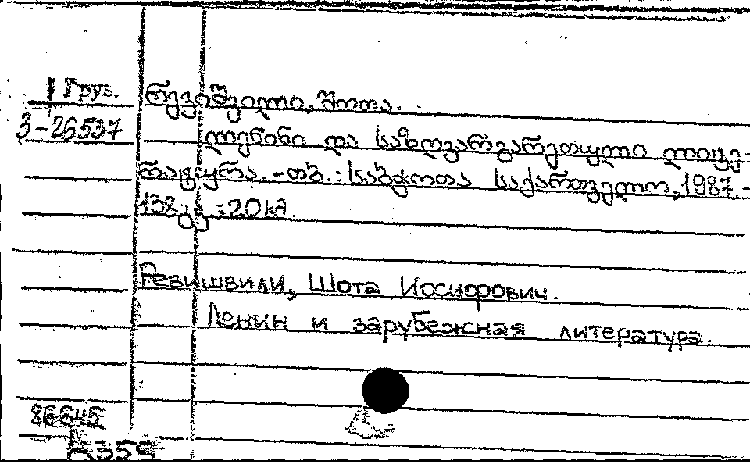 Груз. რევიშვილი, შოთა.
3-26537
ლენინი და საზღვარგარეთული ლიტე-
რატურა. -თბ.: საბჭოთა საქართველო, 1987 -
138 გვ; 20 სმ
Ревишвили, Шота Иосифович.
Ленин и зарубежная литература.
86645